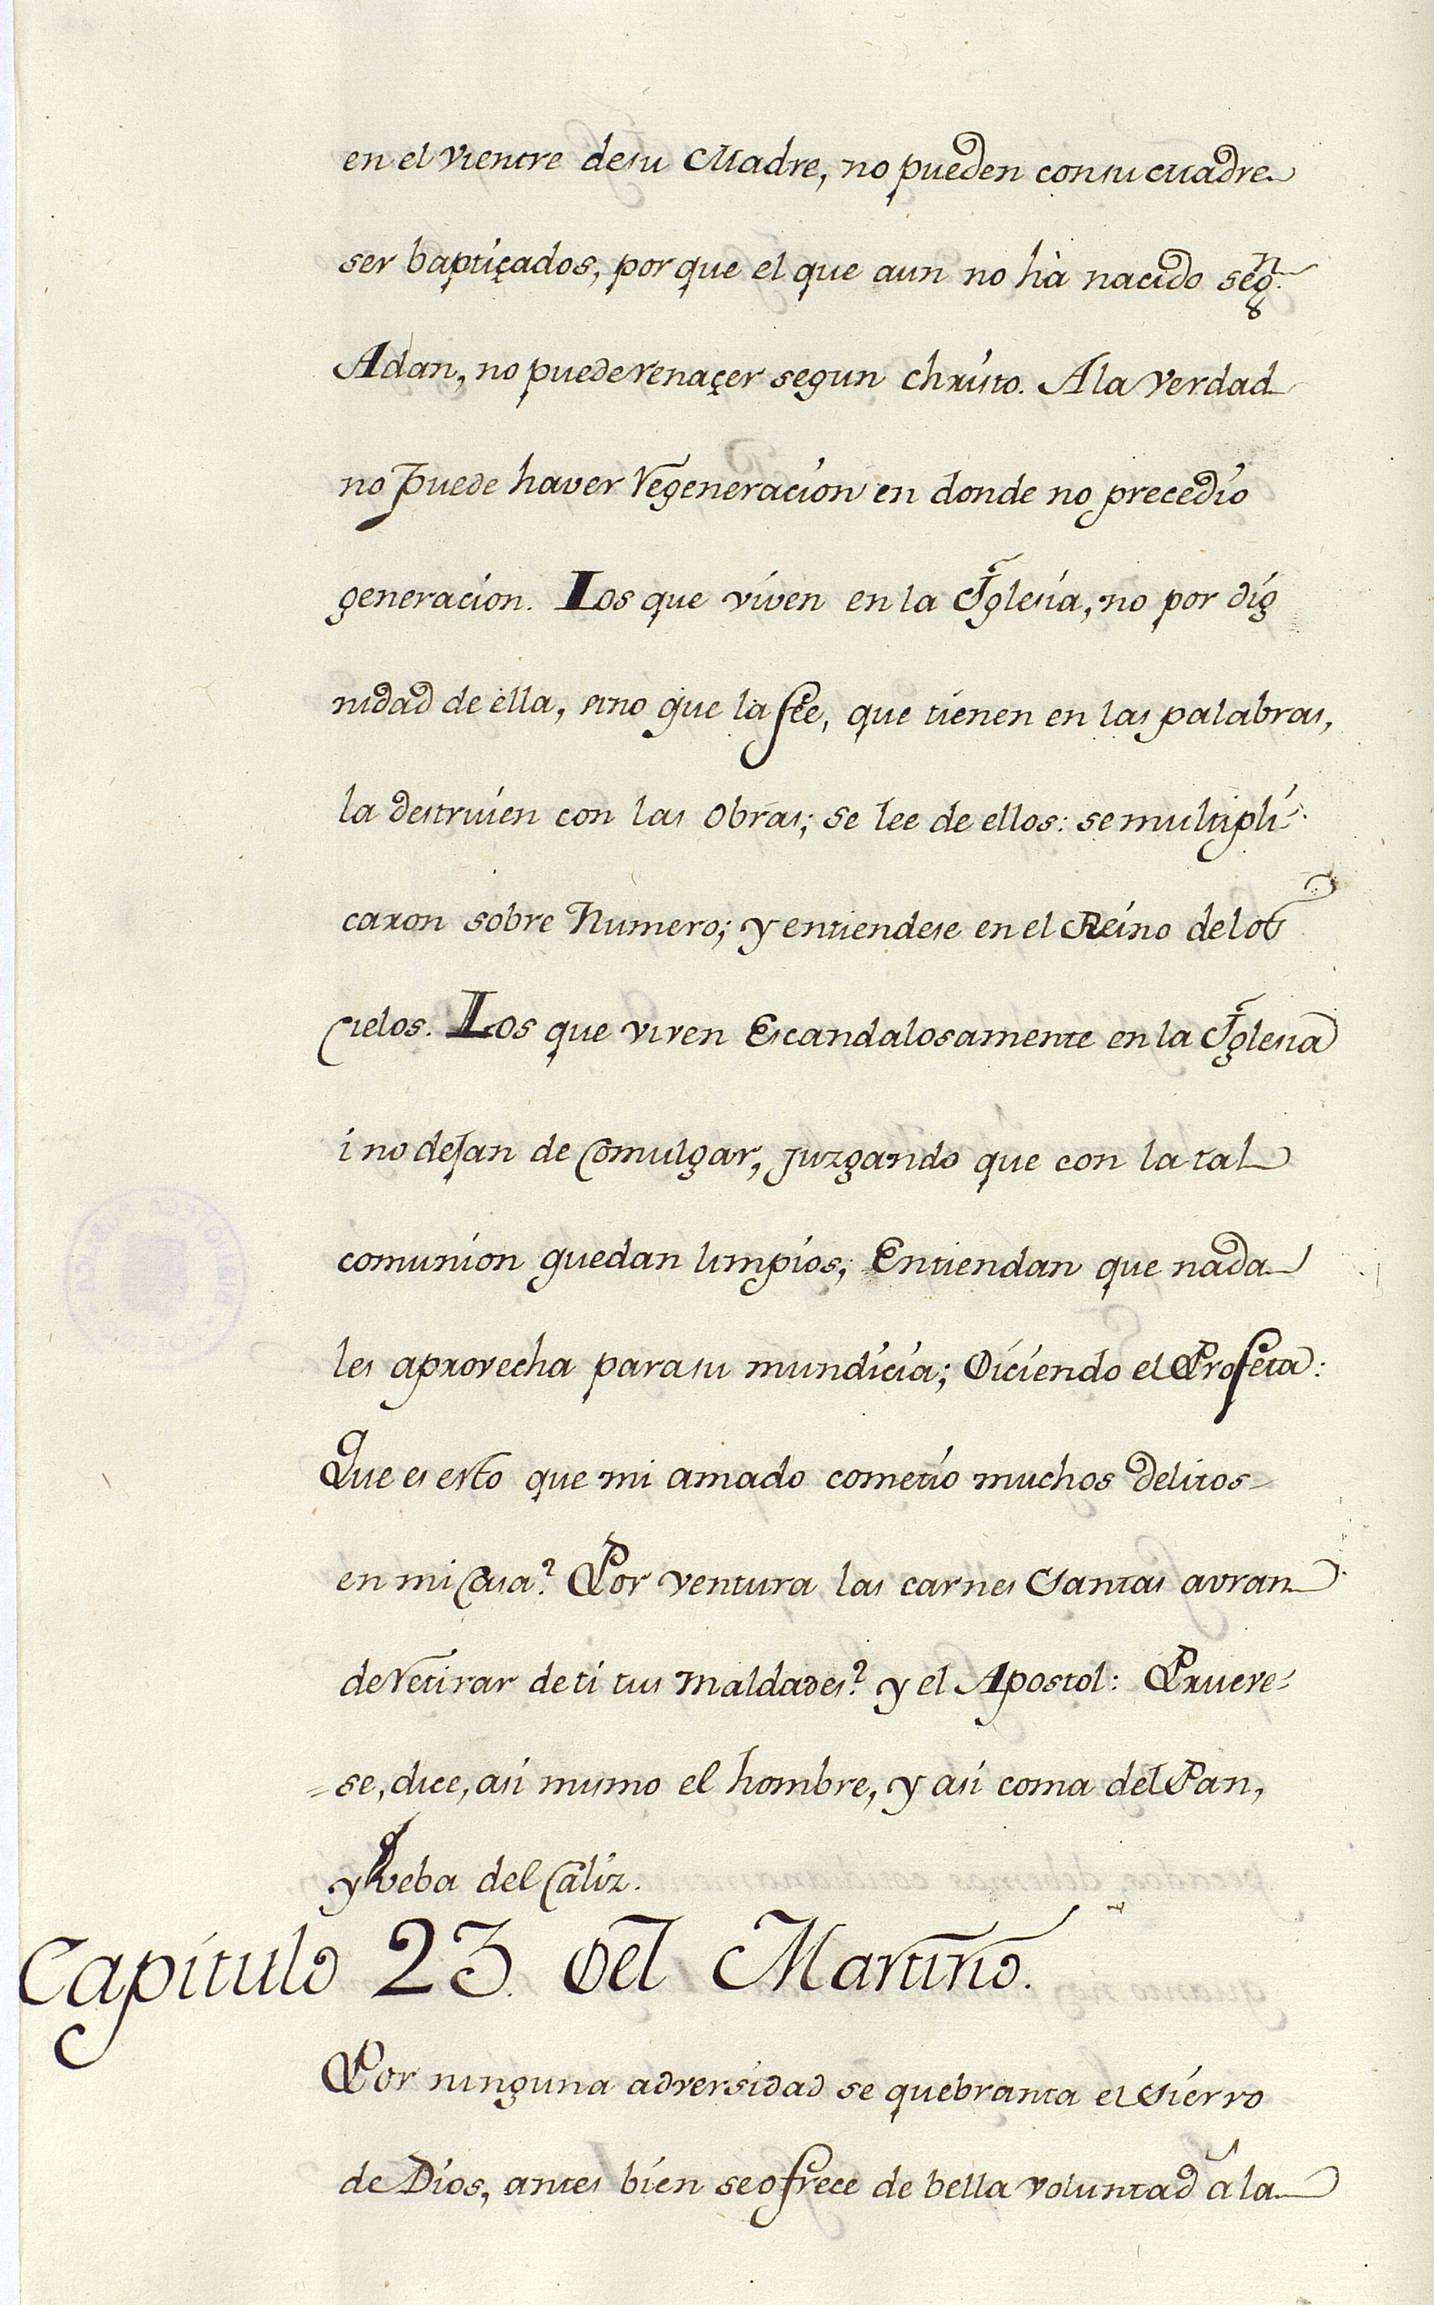 en el vientre de su Madre, no pueden con su madre
ser baptiçados, por que el que aun no hà nacido segn
Adan, no puede renaçer segun christo. A la verdad
no puede haver regeneracion en donde no precedio
generacion. Los que viven en la Iglesia, no por dig
nidad de ella, sino que la fèe, que tienen en las palabras,
la destruien con las obras; se lee de ellos: se multipli-
caron sobre Numero; y entiendese en el Reino de los
Cielos. Los que viven Escandalosamente en la Iglesia
i no dejan de Comulgar, juzgando que con la tal
comunion quedan limpios; Entiendan que nada
les aprovecha para su mundicia; Diciendo el Profeta:
Que es esto que mi amado cometio muchos delitos
en mi Casa? Por ventura las carnes Santas avran
de retirar de ti tus maldades? y el Apostol: Prueve-
=se, dice, asi mismo el hombre, y asi coma del Pan,
y veba del Caliz.
Capitulo 23. Del Martirio.
Por ninguna adversidad se quebranta el Sierro
de Dios, antes bien se ofrece de bella voluntad à la